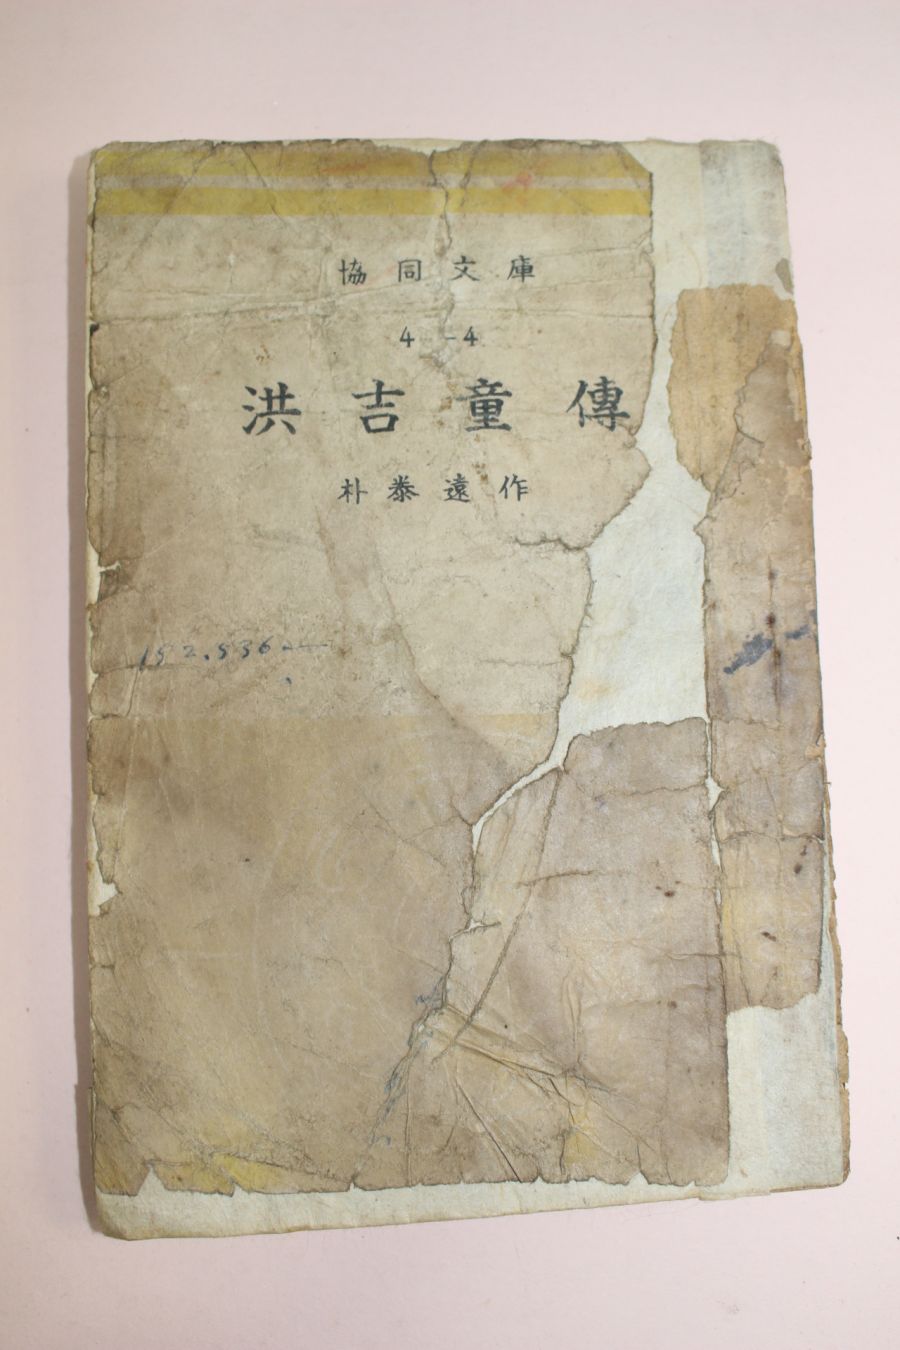 協同文庫
4-4
洪吉童傳
朴泰遠作
152.536